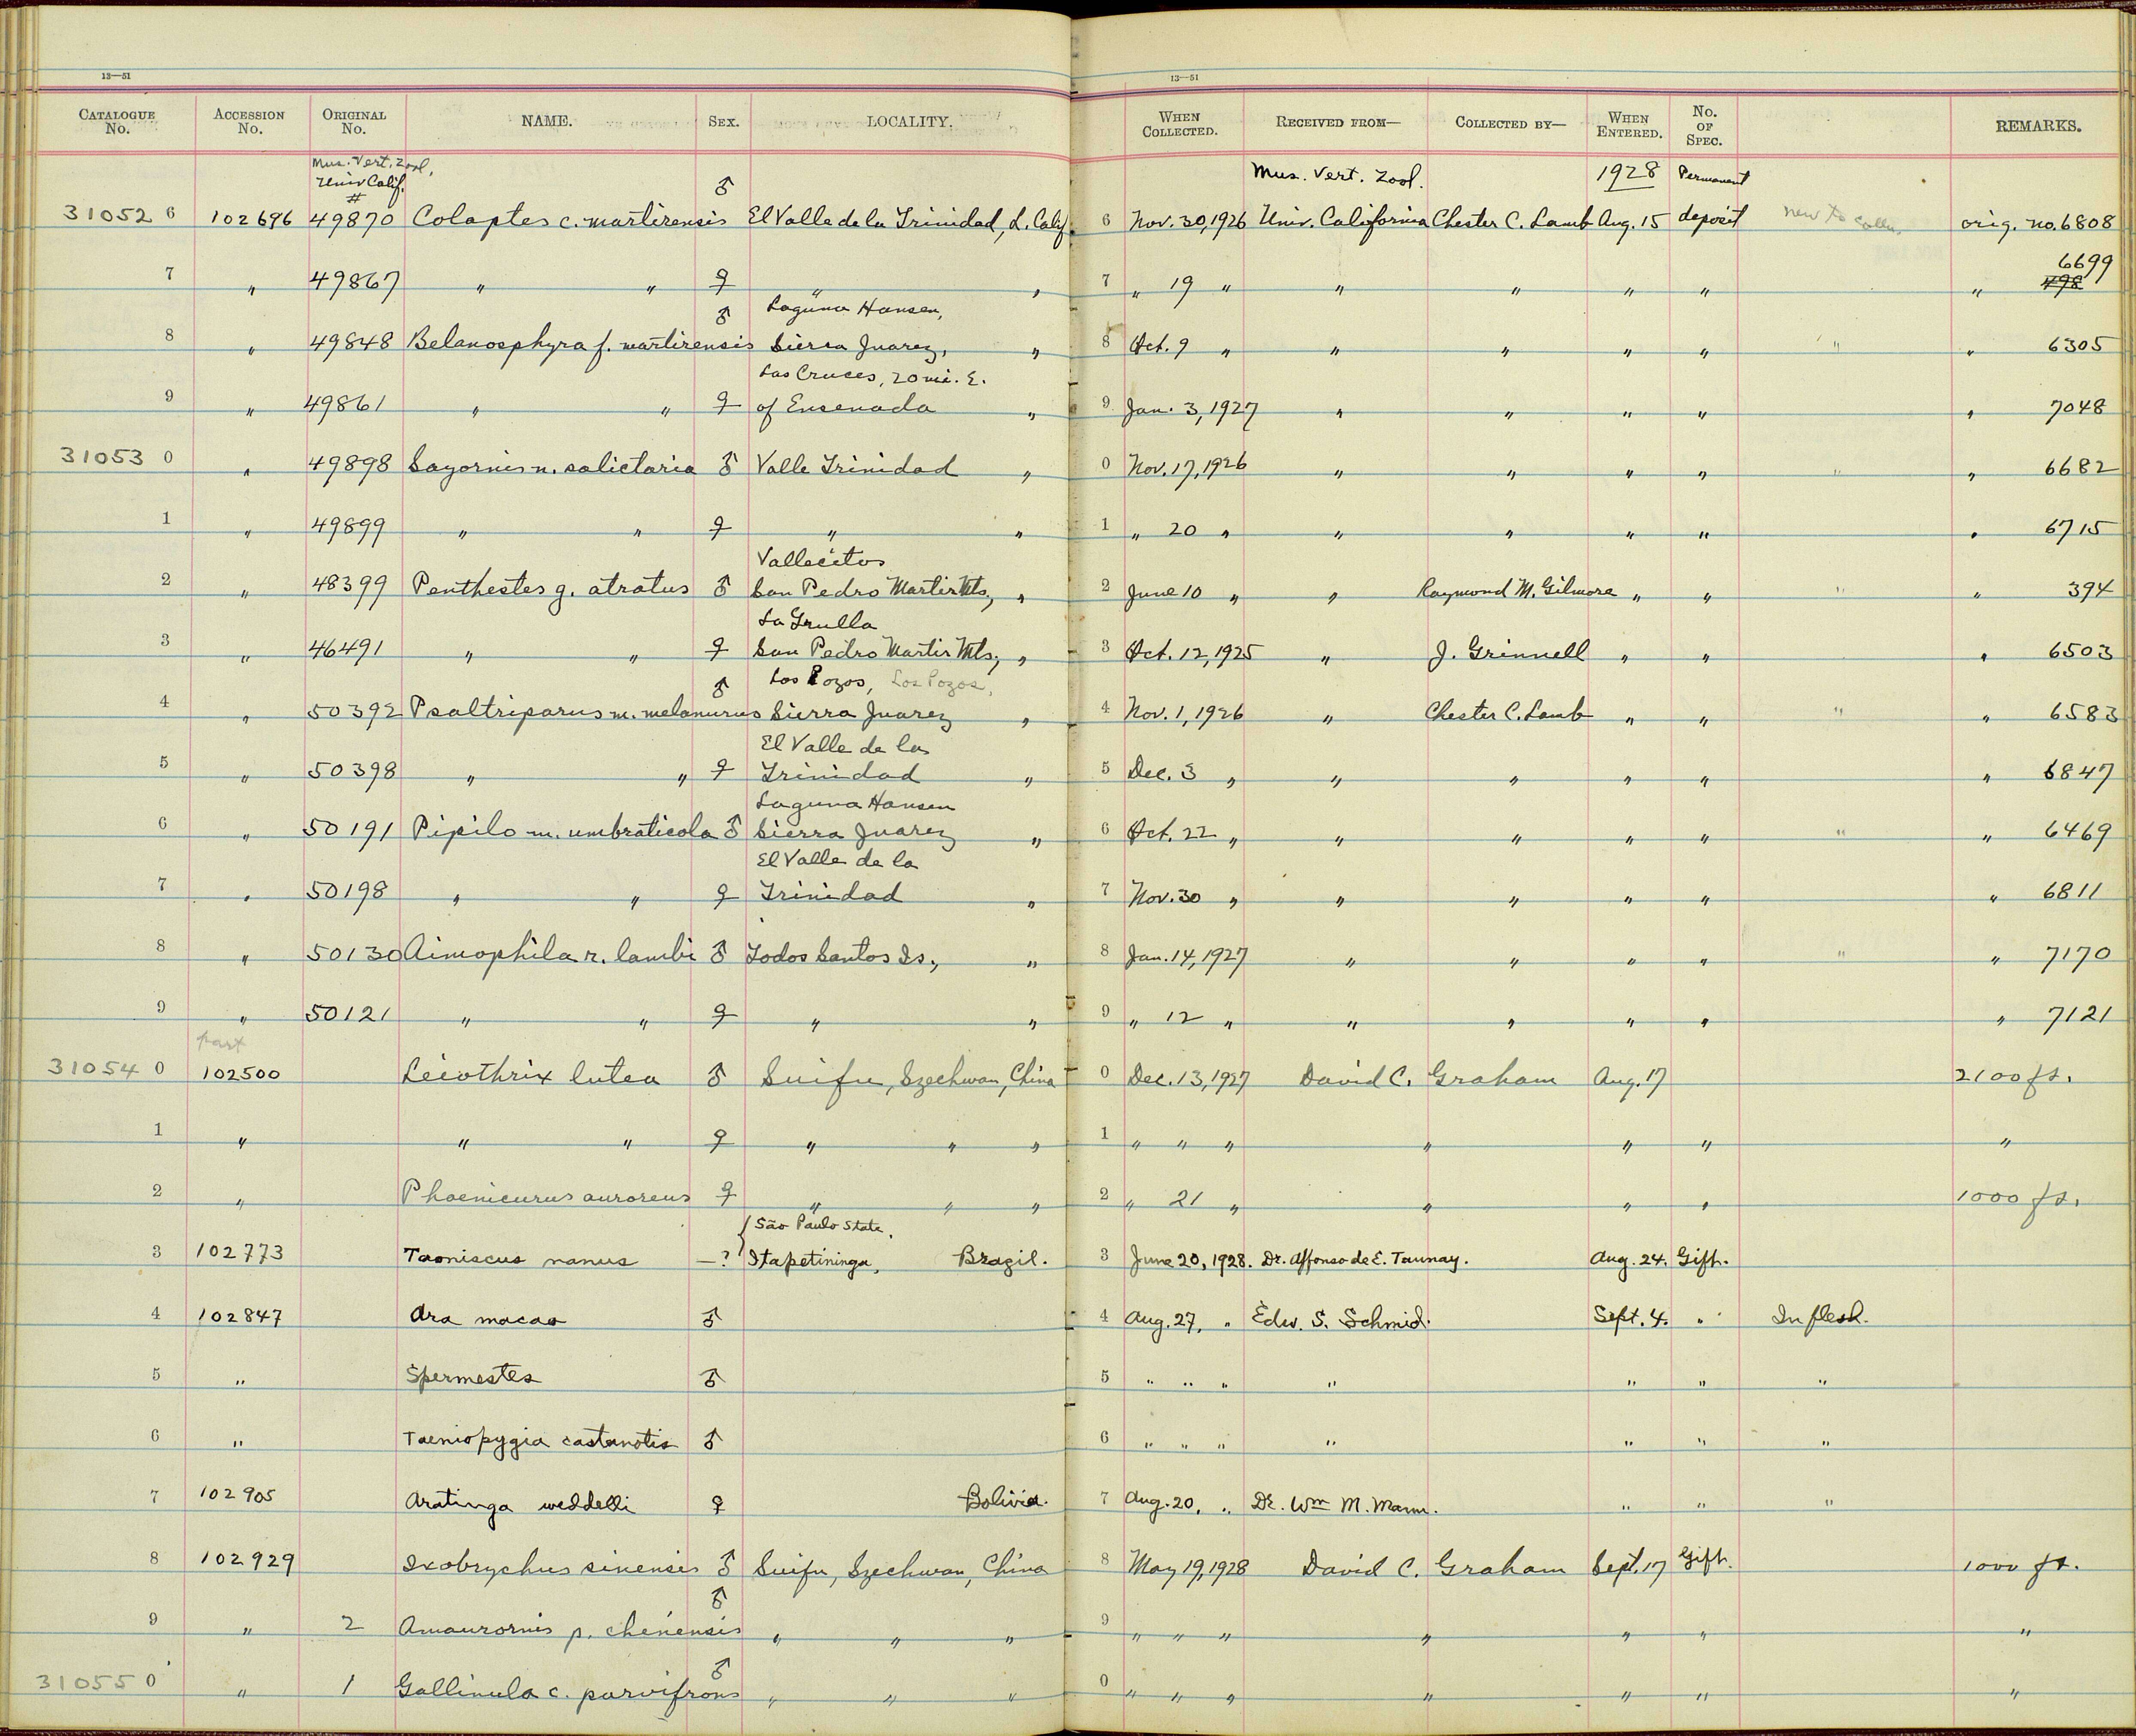 13—51 13—51
CATALOGUE No. ACCESSION No. ORIGINAL No. NAME. SEX. LOCALITY. WHEN COLLECTED. RECEIVED FROM— COLLECTED BY— WHEN ENTERED. No. OF SPEC. REMARKS.
Mus. Vert. Zool, Mus. Vert. Zool. 1928 Permanent
Univ Calif.
#
31052 6 102696 49870 Colaptes c. martirensis ♂ El Valle de la Trinidad, L. Calif. 6 Nov. 30, 1926 Univ. California Chester C. Lamb Aug. 15 deposit new to colln. orig. no. 6808
6699
7 " 49867 " " ♀ " " 7 " 19 " " " " " " 498
Laguna Hansen,
8 " 49848 Belanosphyra f. martirensis ♂ Sierra Juarez, " 8 Oct. 9 " " " " " " " 6305
Las Cruces, 20 mi. E.
9 " 49861 " " ♀ of Ensenada " 9 Jan. 3, 1927 " " " " " 7048
31053 0 " 49898 Sayornis n. salictaria ♂ Valle Trinidad " 0 Nov. 17, 1926 " " " " " " 6682
1 " 49899 " " ♀ " " 1 " 20 " " " " " " 6715
Vallecitos
2 " 48399 Penthestes g. atratus ♂ San Pedro Martir Mts, " 2 June 10 " " Raymond M. Gilmore " " " " 394
La Grulla
3 " 46491 " " ♀ San Pedro Martir Mts, " 3 Oct. 12, 1925 " J. Grinnell " " " 6503
Los Pozos, Los Pozos,
4 " 50392 Psaltriparus m. melanurus ♂ Sierra Juarez " 4 Nov. 1, 1926 " Chester C. Lamb " " " " 6583
El Valle de la
5 " 50398 " " ♀ Trinidad " 5 Dec. 3 " " " " " " 6847
Laguna Hansen
6 " 50191 Pipilo m. umbraticola ♂ Sierra Juarez " 6 Oct. 22 " " " " " " " 6469
El Valle de la
7 " 50198 " " ♀ Trinidad " 7 Nov. 30 " " " " " " 6811
8 " 50130 Aimophila r. lambi ♂ Todos Santos Is., " 8 Jan. 14, 1927 " " " " " " 7170
9 " 50121 " " ♀ " " 9 " 12 " " " " " " 7121
part
31054 0 102500 Leiothrix lutea ♂ Suifu, Szechwan, China 0 Dec. 13, 1927 David C. Graham Aug. 17 2100 ft.
1 " " " ♀ " " " 1 " " " " " " "
2 " Phoenicurus auroreus ♀ " " " 2 " 21 " " " " 1000 ft.
{ São Paulo State,
3 102773 Taoniscus nanus —? Itapetininga, Brazil. 3 June 20, 1928. Dr. Affonso de E. Taunay. Aug. 24. Gift.
4 102847 Ara macao ♂ 4 Aug. 27, " Edw. S. Schmid. Sept. 4. " In flesh.
5 " Spermestes ♂ 5 " " " " " " "
6 " Taeniopygia castanotis ♂ 6 " " " " " " "
7 102905 Aratinga weddelli ♀ Bolivia. 7 Aug. 20, " Dr. Wm M. Mann. " " "
8 102929 Ixobrychus sinensis ♂ Suifu, Szechwan, China 8 May 19, 1928 David C. Graham Sept. 17 Gift. 1000 ft.
9 " 2 Amaurornis p. chinensis ♂ " " " 9 " " " " " " "
31055 0 " 1 Gallinula c. parvifrons ♂ " " " 0 " " " " " " "